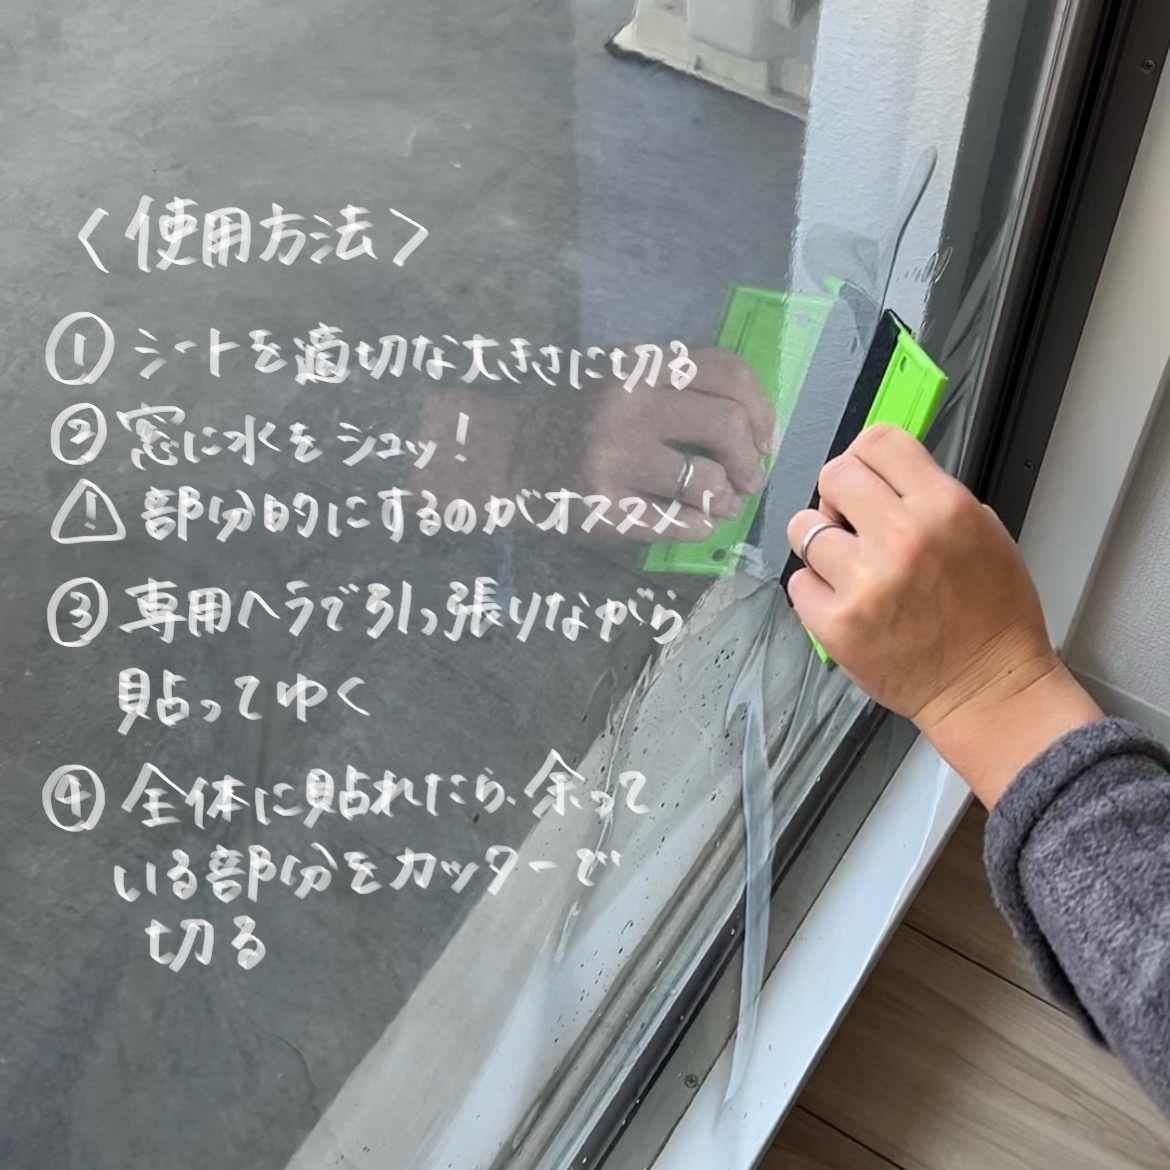 〈使用方法〉
① シートを適切な大きさに切る
② 窓に水をシュッ!
⚠ 部分的にするのがオススメ!
③ 専用ヘラで引っ張りながら
貼ってゆく
④ 全体に貼れたら、余って
いる部分をカッターで
切る